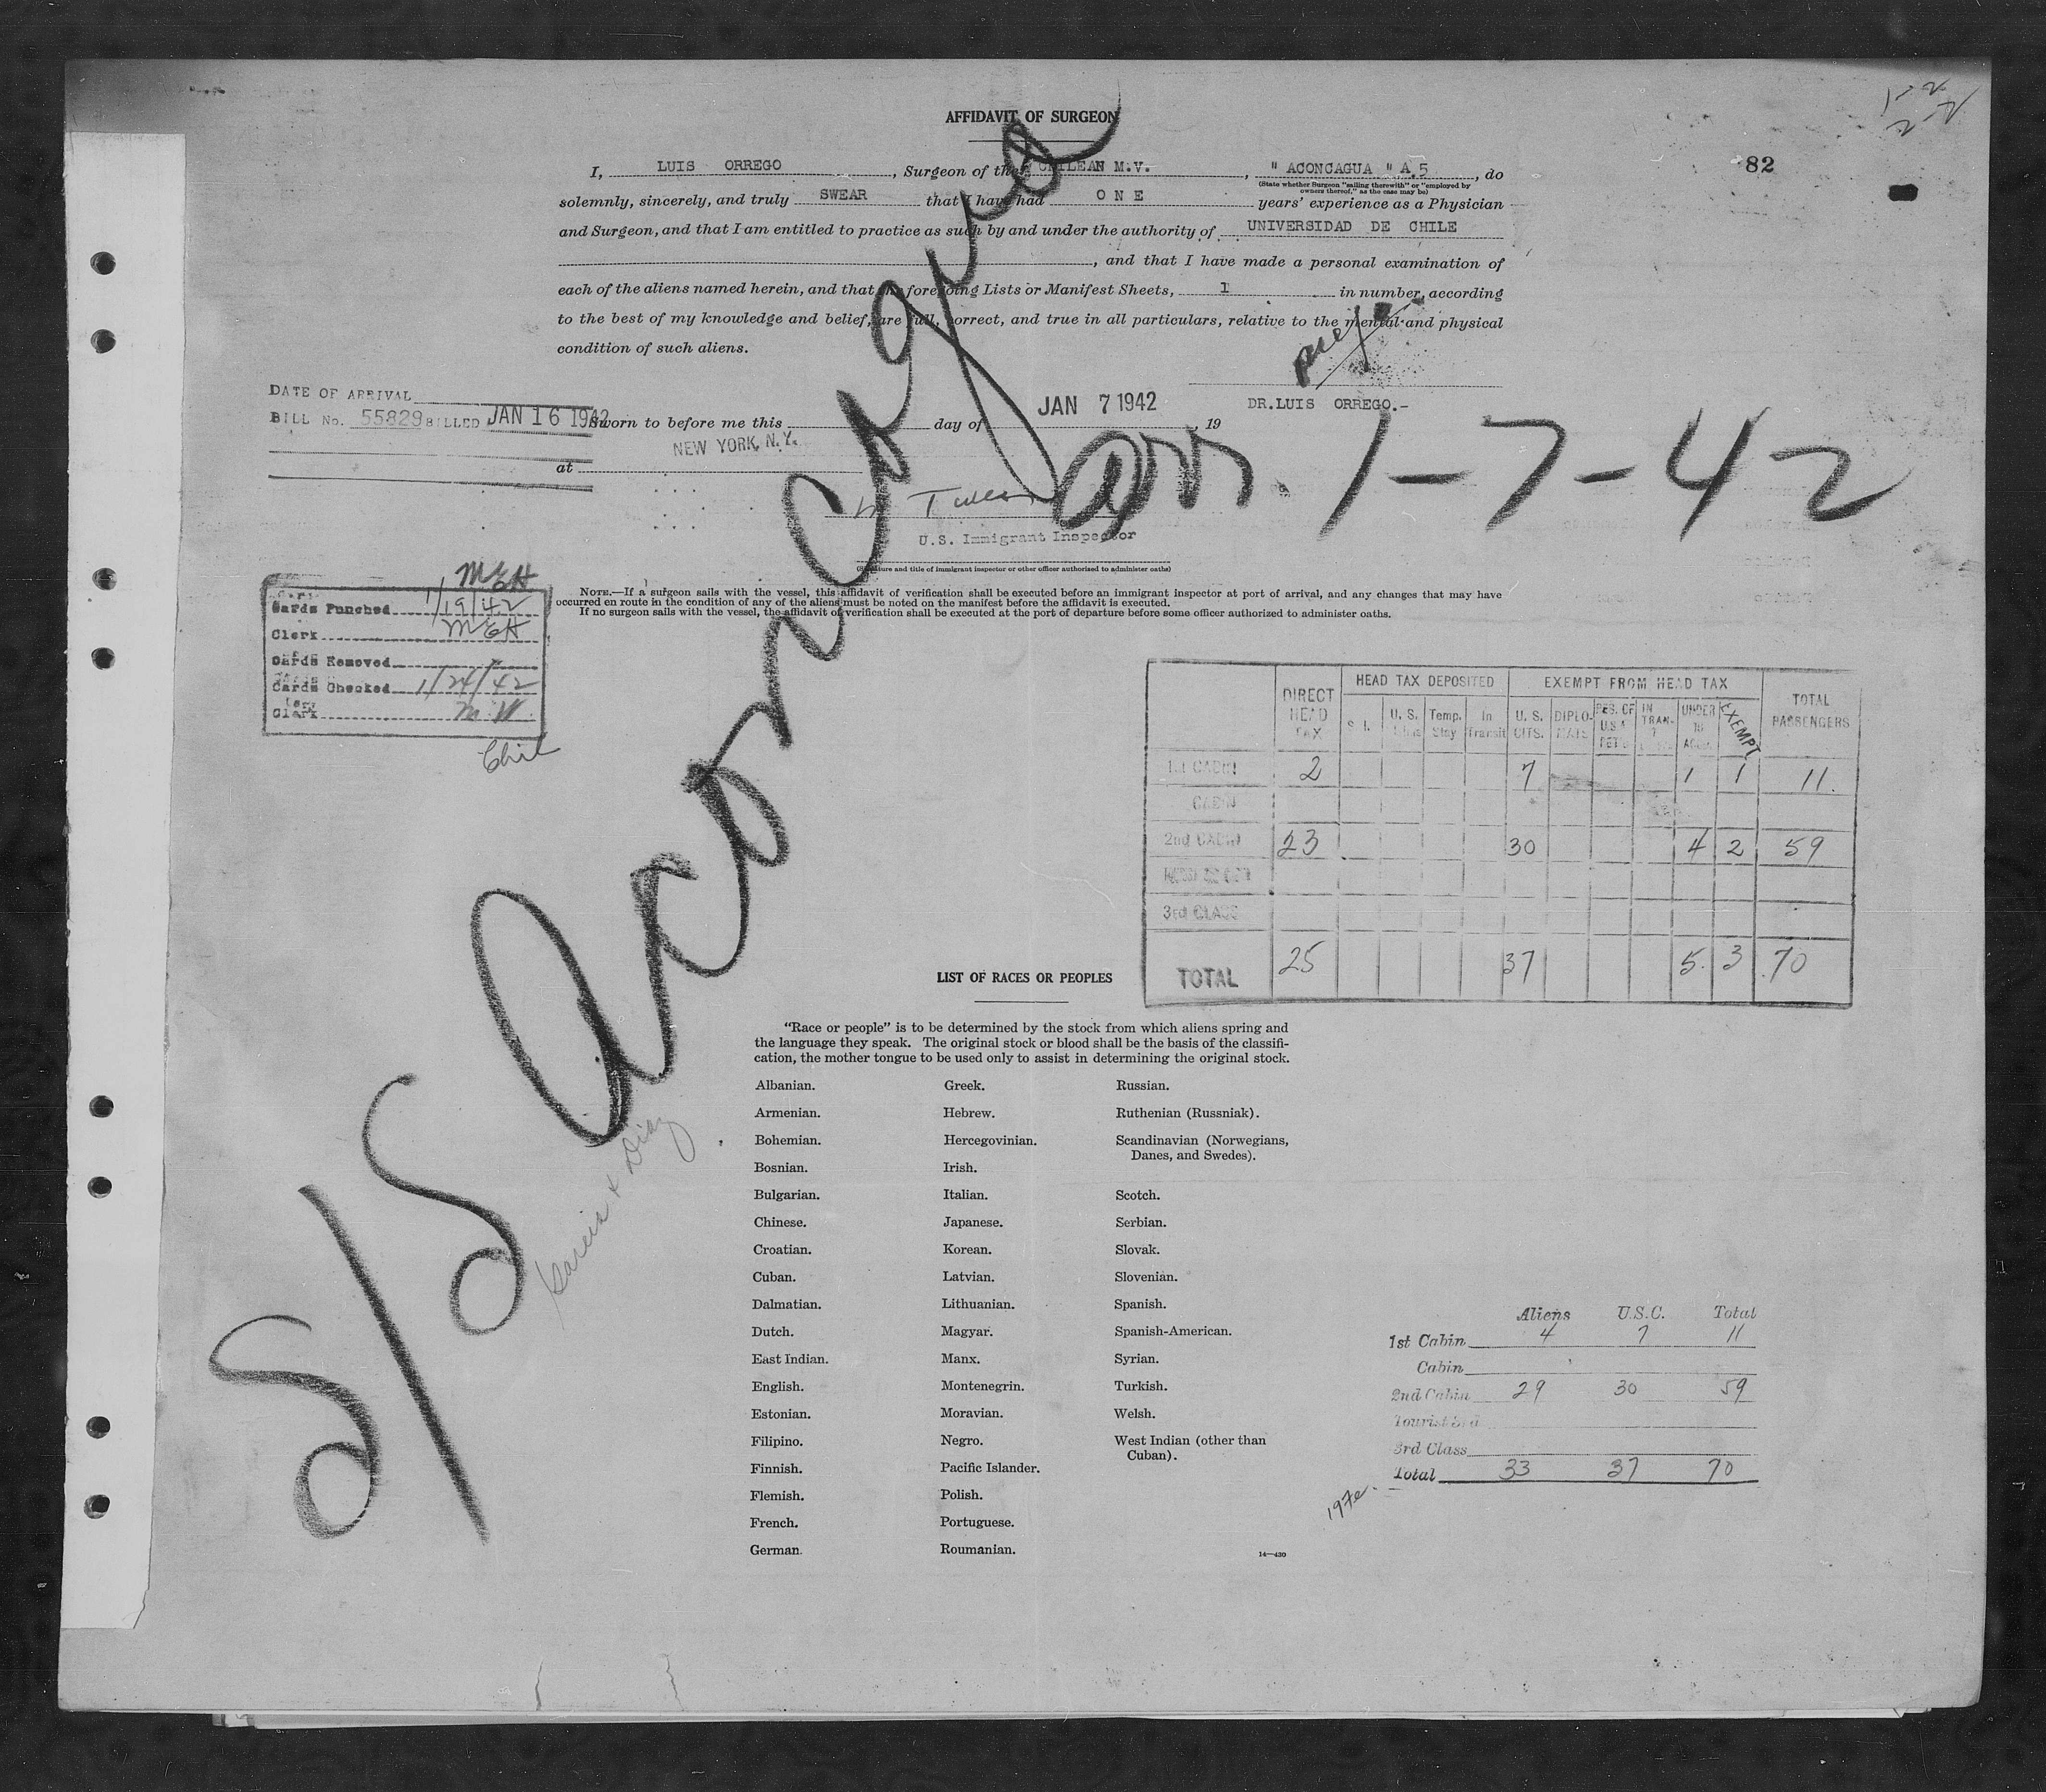 1-2
2-2
AFFIDAVIT OF SURGEON
82
I, LUIS ORREGO, Surgeon of the CHILEAN M.V., " ACONCAGUA " A.5, do
(State whether Surgeon "sailing therewith" or "employed by
owners thereof," as the case may be)
solemnly, sincerely, and truly SWEAR that I have had O N E years' experience as a Physician
and Surgeon, and that I am entitled to practice as such by and under the authority of UNIVERSIDAD DE CHILE
, and that I have made a personal examination of
each of the aliens named herein, and that the foregoing Lists or Manifest Sheets, 1 in number, according
to the best of my knowledge and belief, are full, correct, and true in all particulars, relative to the mental and physical
condition of such aliens.
DR.LUIS ORREGO.-
DATE OF ARRIVAL
BILL No. 55829 BILLED JAN 16 1942
Sworn to before me this day of JAN 7 1942, 19
at NEW YORK, N.Y.
arr. 1-7-42
U.S. Immigrant Inspector
(Signature and title of immigrant inspector or other officer authorized to administer oaths)
NOTE.—If a surgeon sails with the vessel, this affidavit of verification shall be executed before an immigrant inspector at port of arrival, and any changes that may have
occurred en route in the condition of any of the aliens must be noted on the manifest before the affidavit is executed.
If no surgeon sails with the vessel, the affidavit of verification shall be executed at the port of departure before some officer authorized to administer oaths.
MEH
Cards Punched 1/19/42
Clerk MEH
Cards Removed
Cards Checked 1/24/42
Clerk
Chil
S/S Aconcagua
Garcia & Diaz
DIRECT HEAD TAX
HEAD TAX DEPOSITED
EXEMPT FROM HEAD TAX
TOTAL PASSENGERS
S.I. U.S. Temp. Stay In Transit U.S. CITS. DIPLOMATS RES. OF U.S.A. RET'G IN TRAN- UNDER 16 EXEMPT
1st CABIN 2 7 1 1 11.
CABIN
2nd CABIN 23 30 4 2 59
3rd CLASS
TOTAL 25 37 5 3 70
LIST OF RACES OR PEOPLES
"Race or people" is to be determined by the stock from which aliens spring and
the language they speak. The original stock or blood shall be the basis of the classifi-
cation, the mother tongue to be used only to assist in determining the original stock.
Albanian.
Armenian.
Bohemian.
Bosnian.
Bulgarian.
Chinese.
Croatian.
Cuban.
Dalmatian.
Dutch.
East Indian.
English.
Estonian.
Filipino.
Finnish.
Flemish.
French.
German.
Greek.
Hebrew.
Hercegovinian.
Irish.
Italian.
Japanese.
Korean.
Latvian.
Lithuanian.
Magyar.
Manx.
Montenegrin.
Moravian.
Negro.
Pacific Islander.
Polish.
Portuguese.
Roumanian.
Russian.
Ruthenian (Russniak).
Scandinavian (Norwegians,
Danes, and Swedes).
Scotch.
Serbian.
Slovak.
Slovenian.
Spanish.
Spanish-American.
Syrian.
Turkish.
Welsh.
West Indian (other than
Cuban).
14—430
Aliens U.S.C. Total
1st Cabin 4 7 11
Cabin
2nd Cabin 29 30 59
Tourist 3rd
3rd Class
Total 33 37 70